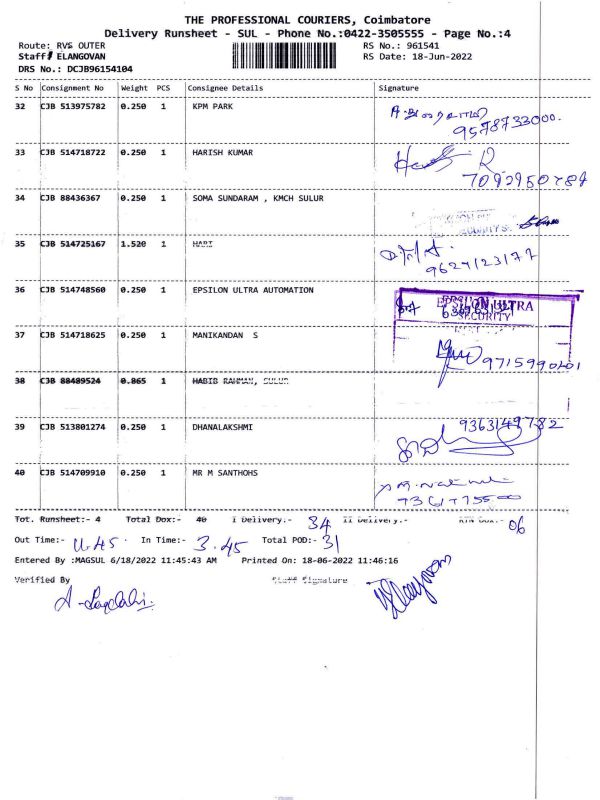 THE PROFESSIONAL COURIERS, Coimbatore
Delivery Runsheet - SUL - Phone No.:0422-3505555 - Page No.:4
Route: RVS OUTER RS No.: 961541
Staff: ELANGOVAN RS Date: 18-Jun-2022
DRS No.: DCJB96154104
S No Consignment No Weight PCS Consignee Details Signature
32 CJB 513975782 0.250 1 KPM PARK
9578733000.
33 CJB 514718722 0.250 1 HARISH KUMAR
7092950789
34 CJB 88436367 0.250 1 SOMA SUNDARAM , KMCH SULUR
35 CJB 514725167 1.520 1 HARI
9624123177
36 CJB 514748560 0.250 1 EPSILON ULTRA AUTOMATION
EPSILON ULTRA
SECURITY
37 CJB 514718625 0.250 1 MANIKANDAN S
38 CJB 88489524 0.865 1 HABIB RAHMAN, SULUR
39 CJB 513801274 0.250 1 DHANALAKSHMI 9363149782
40 CJB 514709910 0.250 1 MR M SANTHOHS
Tot. Runsheet:- 4 Total Dox:- 40 I Delivery:- 34 II Delivery:- RTN Dox:- 06
Out Time:- In Time:- 3.45 Total POD:- 31
Entered By :MAGSUL 6/18/2022 11:45:43 AM Printed On: 18-06-2022 11:46:16
Verified By Staff Signature